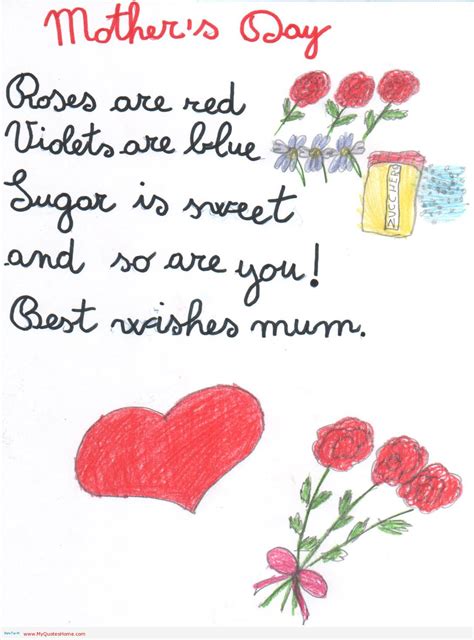 Mother's Day
Roses are red
Violets are blue
Sugar is sweet
ZUCCHERO
and so are you!
Best wishes mum.
www.MyQuotesHome.com